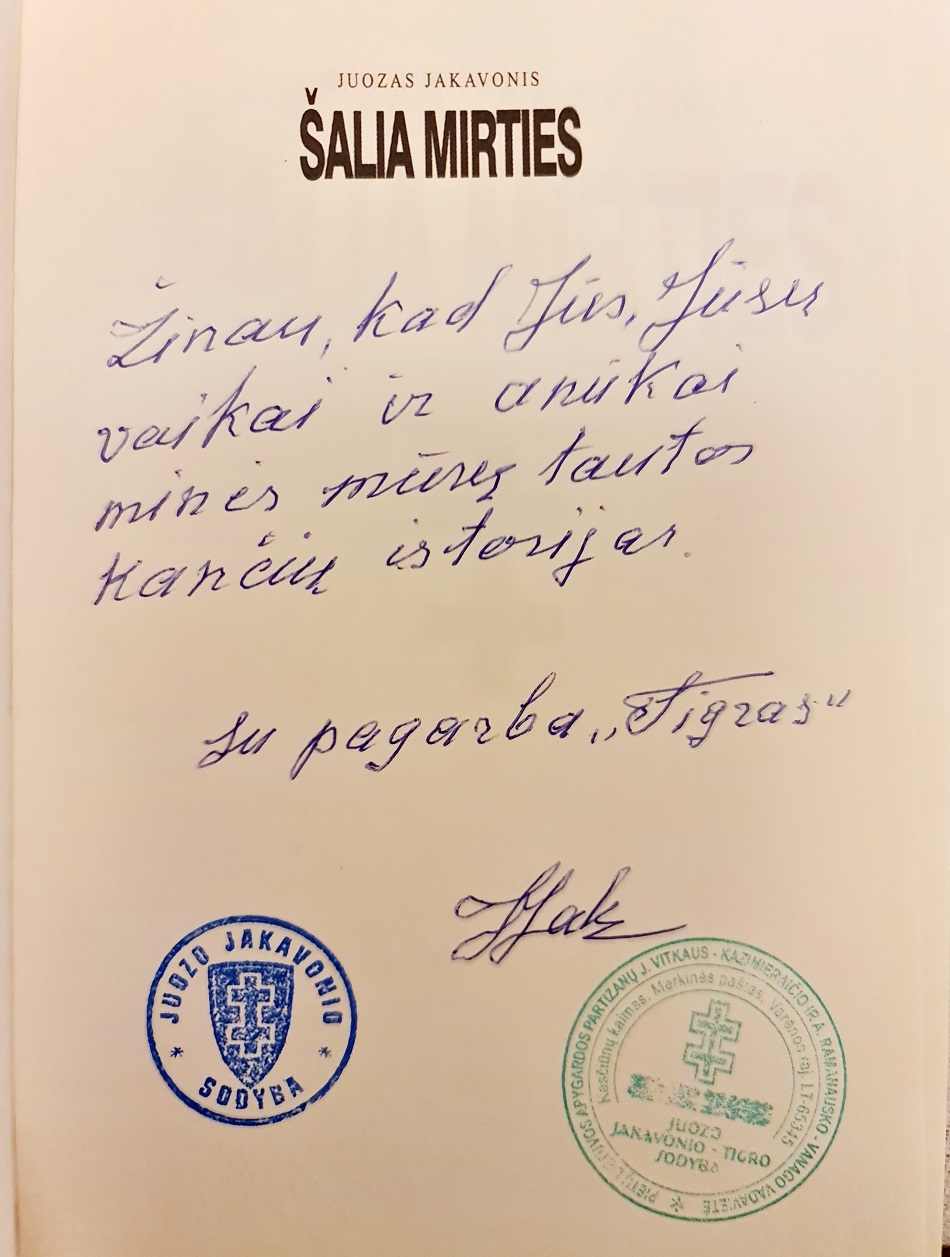 JUOZAS JAKAVONIS
ŠALIA MIRTIES
Žinau, kad Jūs, Jūsų
vaikai ir anūkai
minės mūsų tautos
kančių istorijas.
su pagarba „Tigras“
JJak
JUOZO JAKAVONIO
* SODYBA *
PIETŲ LIETUVOS APYGARDOS PARTIZANŲ J. VITKAUS - KAZIMIERAIČIO IR A. RAMANAUSKO - VANAGO VADAVIETĖ *
Kasčiūnų kaimas, Merkinės paštas, Varėnos raj. LT-65345
JUOZO
JAKAVONIO - TIGRO
SODYBA